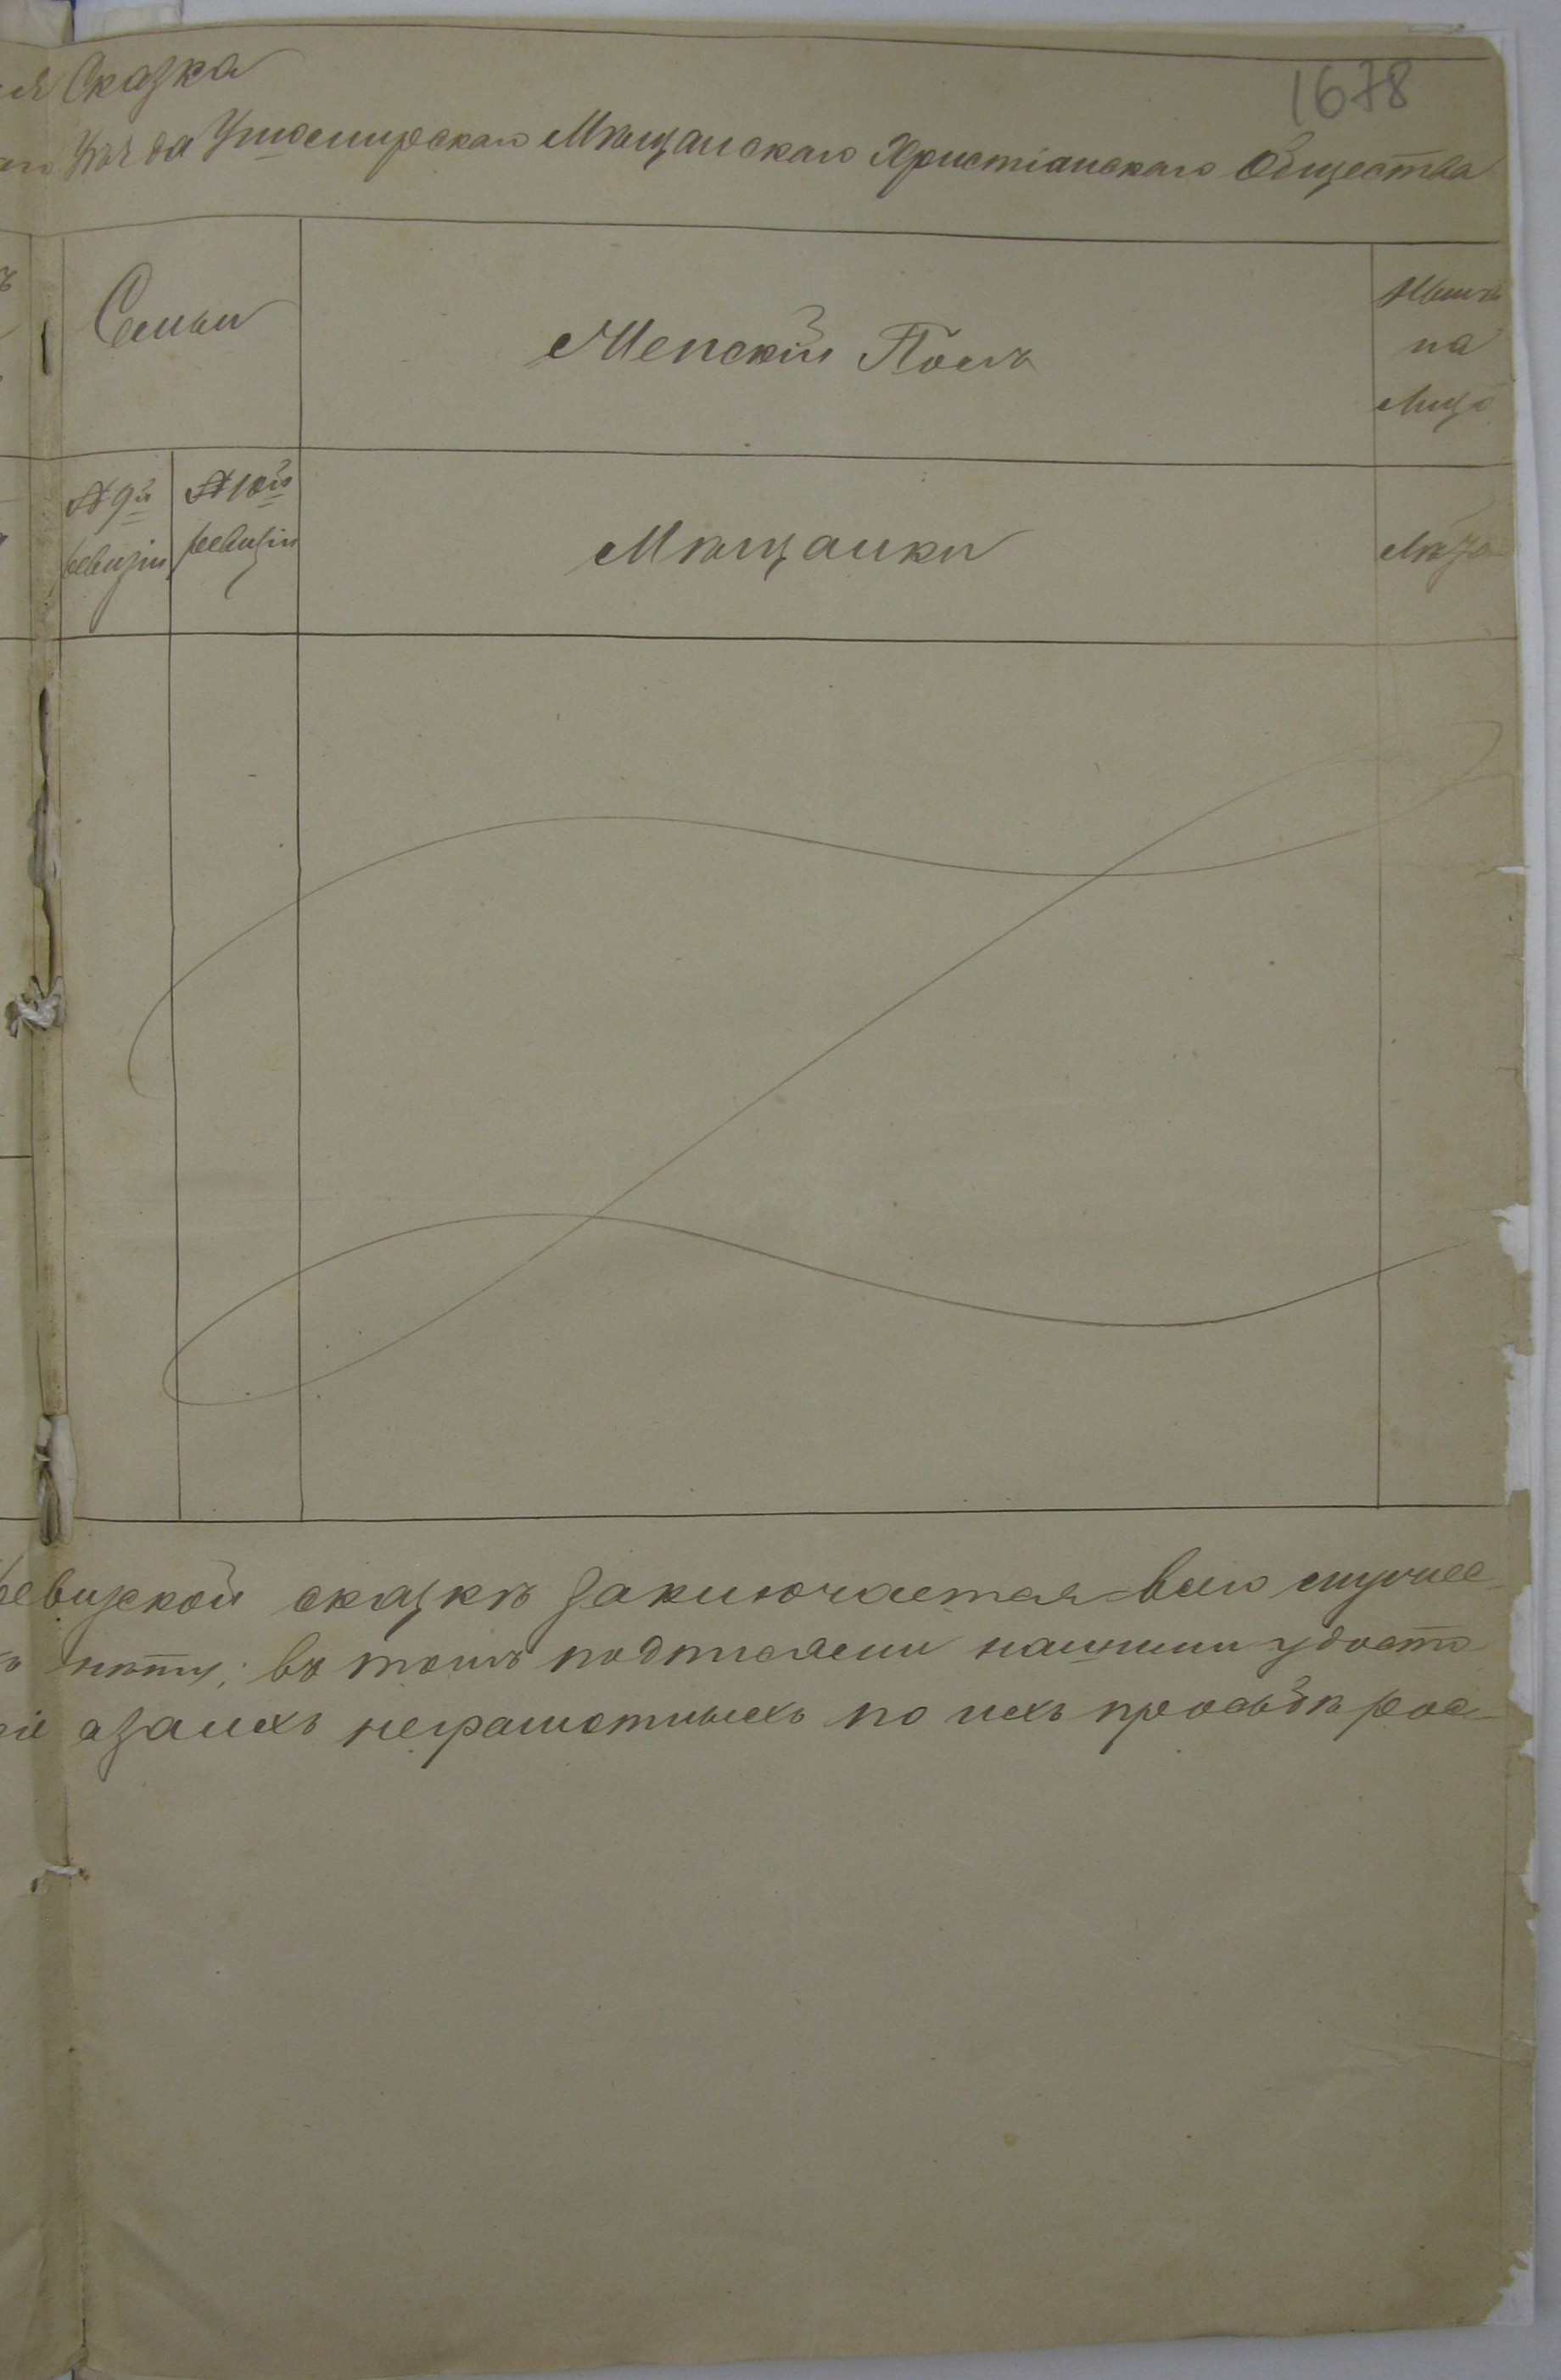 1678
ая Сказка
Уѣзда Ушомирскаго Мѣщанскаго Христіанскаго Общества
Семьи
Женскій Полъ
на
Лицо
№ 9й
ревизіи
№ 10й
ревизіи
Мѣщанки
Лѣта
ревизской сказкѣ заключается всего мужчес
нѣту; въ томъ подписями нашими удосто
а за ихъ неграмотныхъ по ихъ просьбѣ рос